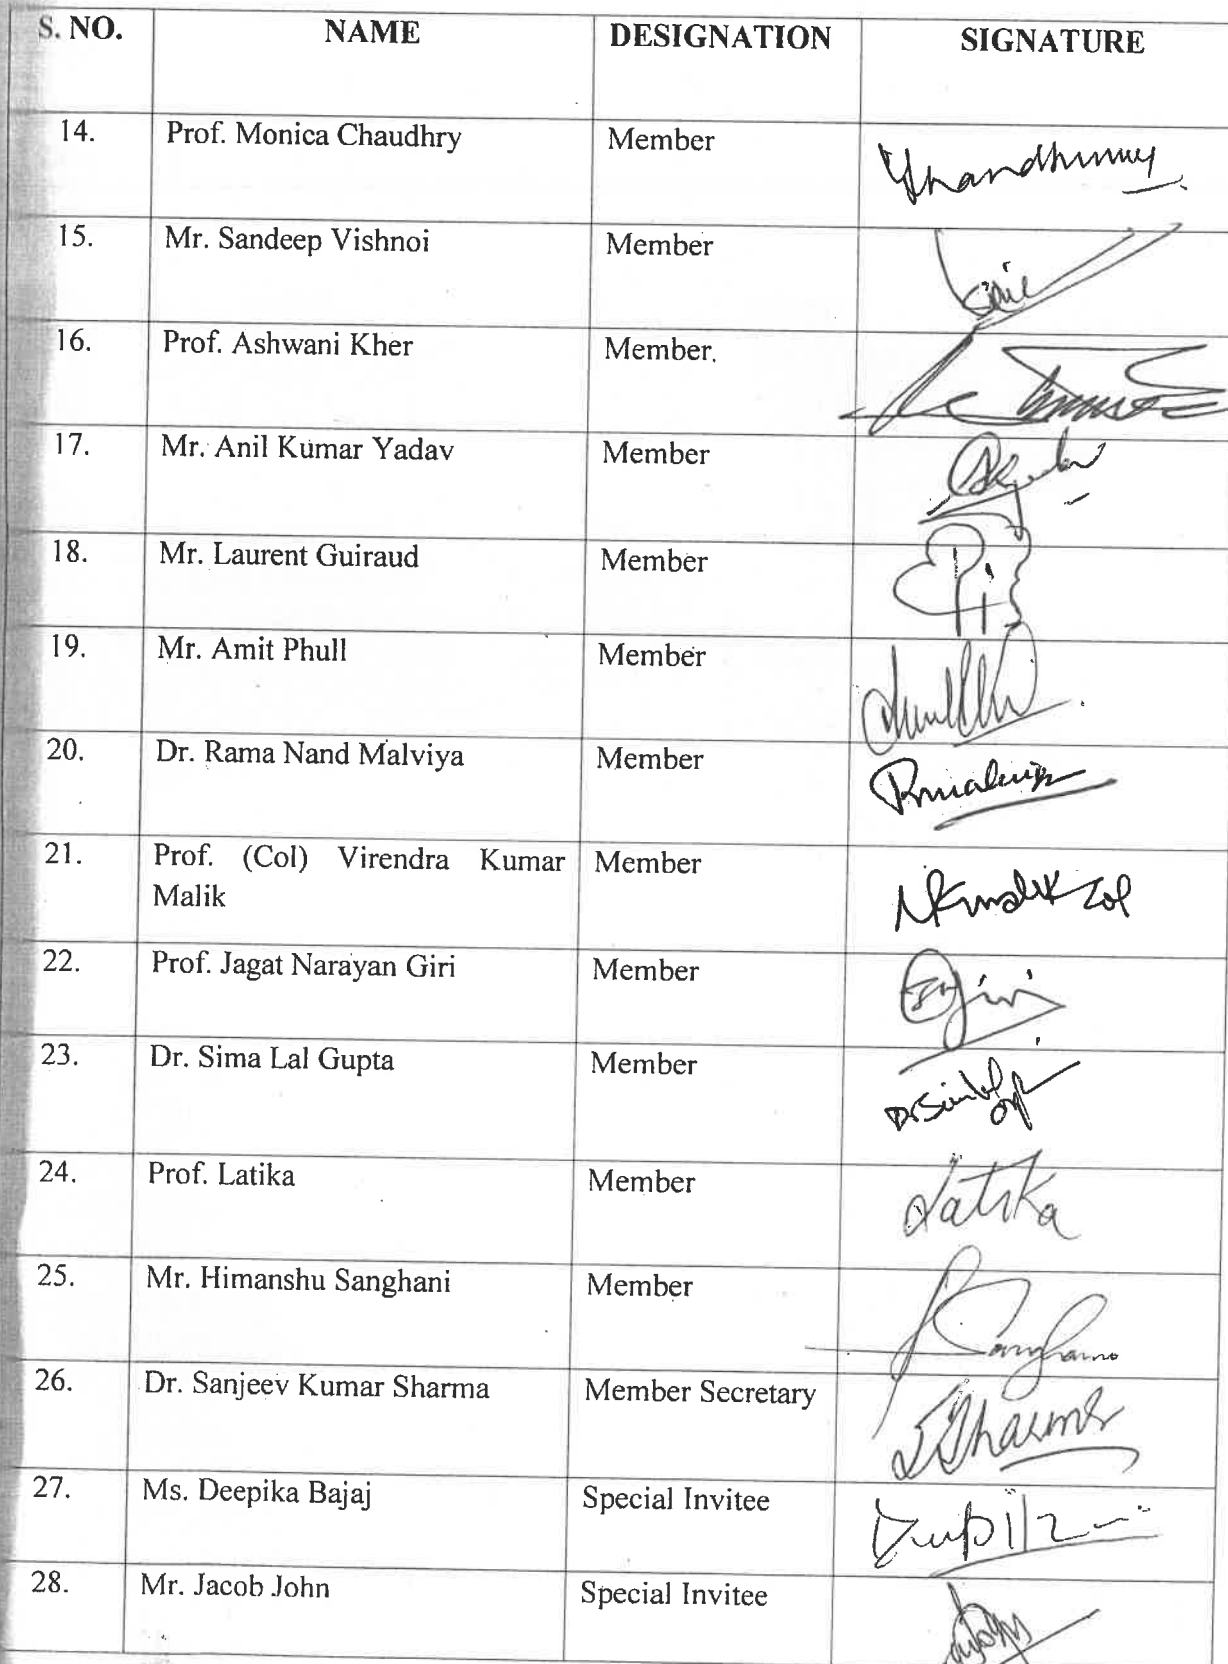 S. NO. NAME DESIGNATION SIGNATURE
14. Prof. Monica Chaudhry Member
15. Mr. Sandeep Vishnoi Member
16. Prof. Ashwani Kher Member.
17. Mr. Anil Kumar Yadav Member
18. Mr. Laurent Guiraud Member
19. Mr. Amit Phull Member
20. Dr. Rama Nand Malviya Member
21. Prof. (Col) Virendra Kumar Member
Malik
22. Prof. Jagat Narayan Giri Member
23. Dr. Sima Lal Gupta Member
24. Prof. Latika Member Latika
25. Mr. Himanshu Sanghani Member
26. Dr. Sanjeev Kumar Sharma Member Secretary
27. Ms. Deepika Bajaj Special Invitee
28. Mr. Jacob John Special Invitee